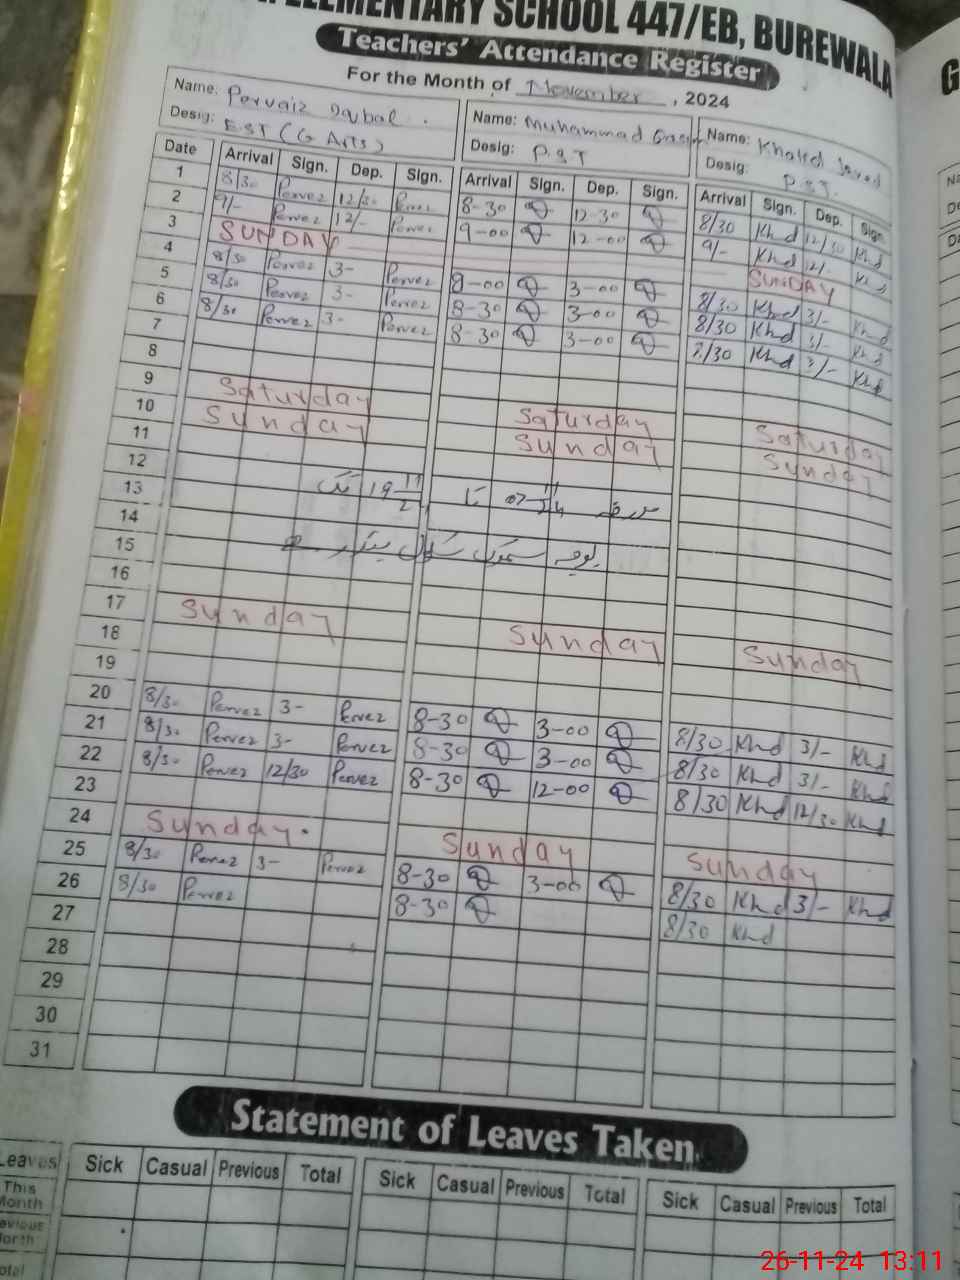 ELEMENTARY SCHOOL 447/EB, BUREWALA
Teachers' Attendance Register
For the Month of November, 2024
Name: Pervaiz Iqbal. Name: Muhammad Name: Khalid Javed
Desig: EST (G Arts) Desig: P.S.T Desig: P.S.T.
Date Arrival Sign. Dep. Sign. Arrival Sign. Dep. Sign. Arrival Sign. Dep. Sign.
1 8/30 Pervez 12/30 Pervez 8-30 12-30 8/30 Khd 12/30 Khd
2 9/- Pervez 12/- Pervez 9-00 12-00 9/- Khd 12/- Khd
3 SUNDAY SUNDAY
4 8/30 Pervez 3- Pervez 8-00 3-00 8/30 Khd 3/- Khd
5 8/30 Pervez 3- Pervez 8-30 3-00 8/30 Khd 3/- Khd
6 8/30 Pervez 3- Pervez 8-30 3-00 8/30 Khd 3/- Khd
7
8
9 Saturday Saturday Saturday
10 Sunday Sunday Sunday
11
12
13 تک
14
15 بوجہ سموگ سکول
16
17 Sunday Sunday Sunday
18
19
20 8/30 Pervez 3- Pervez 8-30 3-00 8/30 Khd 3/- Khd
21 8/30 Pervez 3- Pervez 8-30 3-00 8/30 Khd 3/- Khd
22 8/30 Pervez 12/30 Pervez 8-30 12-00 8/30 Khd 12/30 Khd
23
24 Sunday. Sunday Sunday
25 8/30 Pervez 3- Pervez 8-30 3-00 8/30 Khd 3/- Khd
26 8/30 Pervez 8-30 8/30 Khd
27
28
29
30
31
Statement of Leaves Taken
Leaves Sick Casual Previous Total Sick Casual Previous Total Sick Casual Previous Total
This Month
26-11-24 13:11